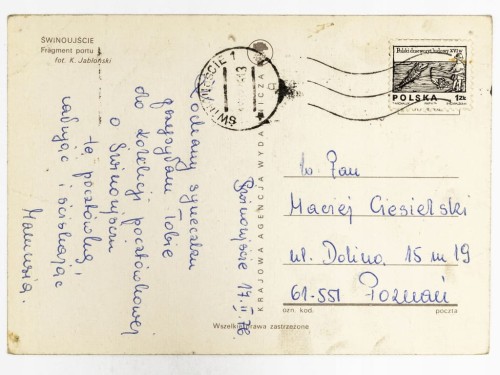 ŚWINOUJŚCIE
Fragment portu
fot. K. Jabłoński
ŚWINOUJŚCIE 1
Polski drzeworyt ludowy XVI w.
POLSKA 1zł
KRAJOWA AGENCJA WYDAWNICZA
Świnoujście 17.II.76
Kochany syneczku
przesyłam Tobie
do kolekcji pocztówkowej
o Świnoujściu
tą pocztówkę
całując i ściskając
Mamusia.
W. Pan
Maciej Ciesielski
ul. Dolina 15 m 19
61-551 Poznań
ozn. kod. poczta
Wszelkie prawa zastrzeżone